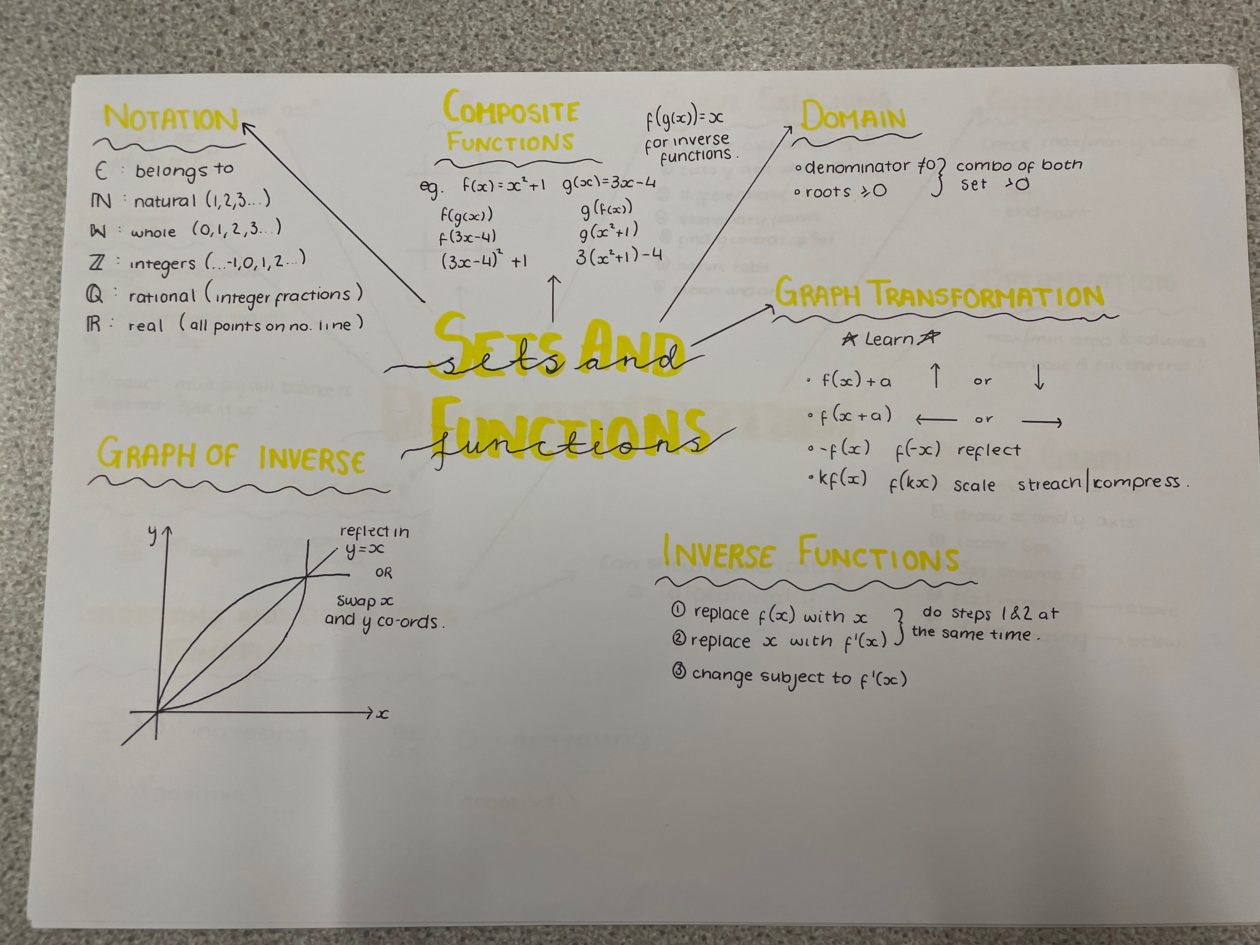 NOTATION
∈ : belongs to
ℕ : natural (1,2,3...)
𝕎 : whole (0,1,2,3...)
ℤ : integers (...-1,0,1,2...)
ℚ : rational (integer fractions)
ℝ : real (all points on no. line)
COMPOSITE
FUNCTIONS
f(g(x))=x
for inverse
functions.
eg. f(x)=x²+1 g(x)=3x-4
f(g(x)) g(f(x))
f(3x-4) g(x²+1)
(3x-4)²+1 3(x²+1)-4
DOMAIN
• denominator ≠0 } combo of both
• roots ≥0 set >0
SETS AND
sets and
FUNCTIONS
functions
GRAPH TRANSFORMATION
☆ Learn ☆
• f(x)+a ↑ or ↓
• f(x+a) ← or →
• -f(x) f(-x) reflect
• kf(x) f(kx) scale streach/compress.
GRAPH OF INVERSE
y
reflect in
y=x
OR
swap x
and y co-ords.
x
INVERSE FUNCTIONS
① replace f(x) with x } do steps 1&2 at
② replace x with f'(x) the same time.
③ change subject to f'(x)